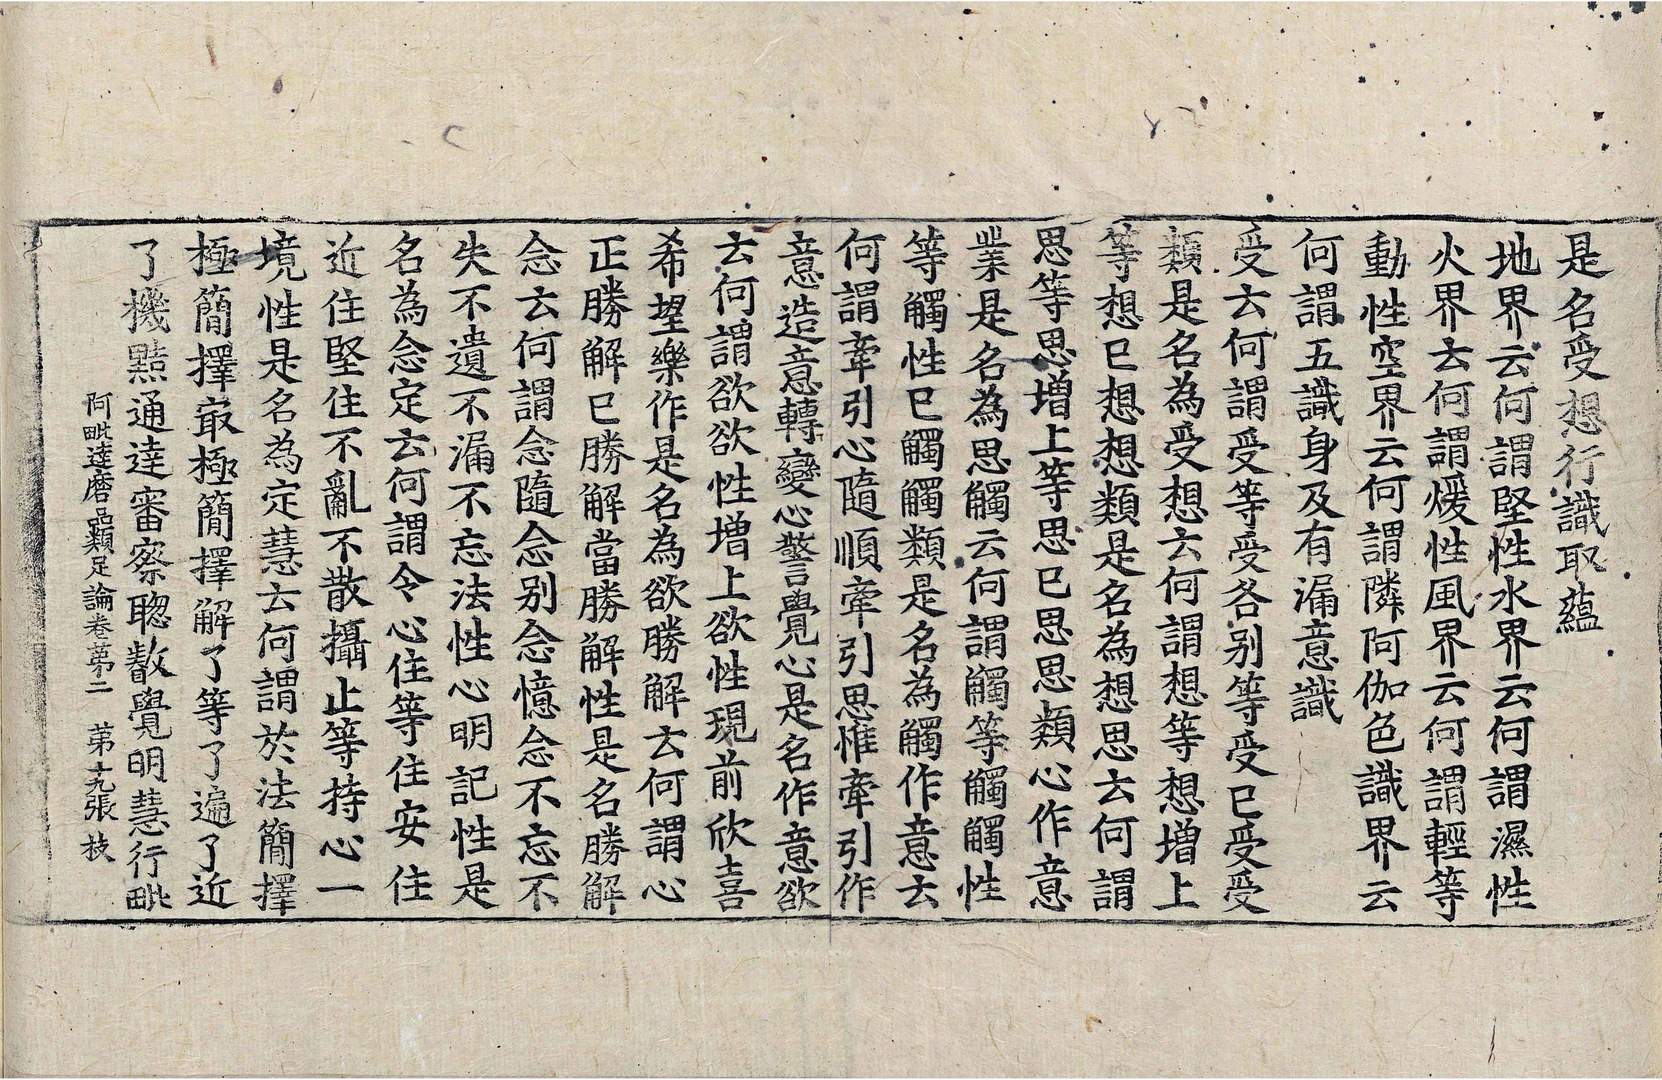 是名受想行識取蘊
地界云何謂堅性水界云何謂濕性
火界云何謂煖性風界云何謂輕等
動性空界云何謂隣阿伽色識界云
何謂五識身及有漏意識
受云何謂受等受各别等受已受受
類是名為受想云何謂想等想增上
等想已想想類是名為想思云何謂
思等思增上等思已思思類心作意
業是名為思觸云何謂觸等觸觸性
等觸性已觸觸類是名為觸作意云
何謂牽引心隨順牽引思惟牽引作
意造意轉變心警覺心是名作意欲
云何謂欲欲性增上欲性現前欣喜
希望樂作是名為欲勝解云何謂心
正勝解已勝解當勝解性是名勝解
念云何謂念隨念别念憶念不忘不
失不遺不漏不忘法性心明記性是
名為念定云何謂令心住等住安住
近住堅住不亂不散攝止等持心一
境性是名為定慧云何謂於法簡擇
極簡擇㝡極簡擇解了等了遍了近
了機黠通達審察聦叡覺明慧行毗
阿毗達磨品類足論卷第二 第十九張 枝